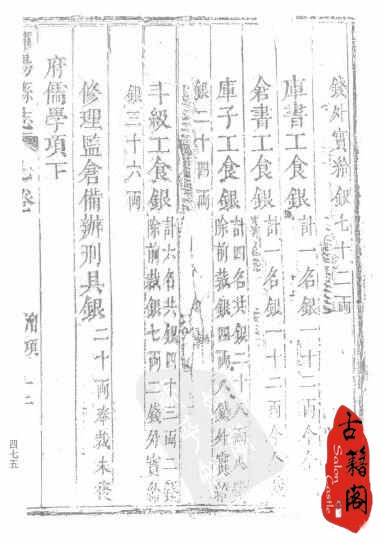 錢外實給銀七十二両
庫書工食銀計一名銀一十二両今全
倉書工食銀計一名銀一十二両今全
庫子工食銀計四名共銀二十八両
除前裁銀四両八錢外實給
銀二十四両
斗級工食銀計六名共銀四十三両二錢
除前裁銀七両二錢外實給
銀三十六両
修理監倉備辦刑具銀二十両奉裁未復
府儒學項下
陽縣志
卷
四七五
古籍阁
Salon
Castle